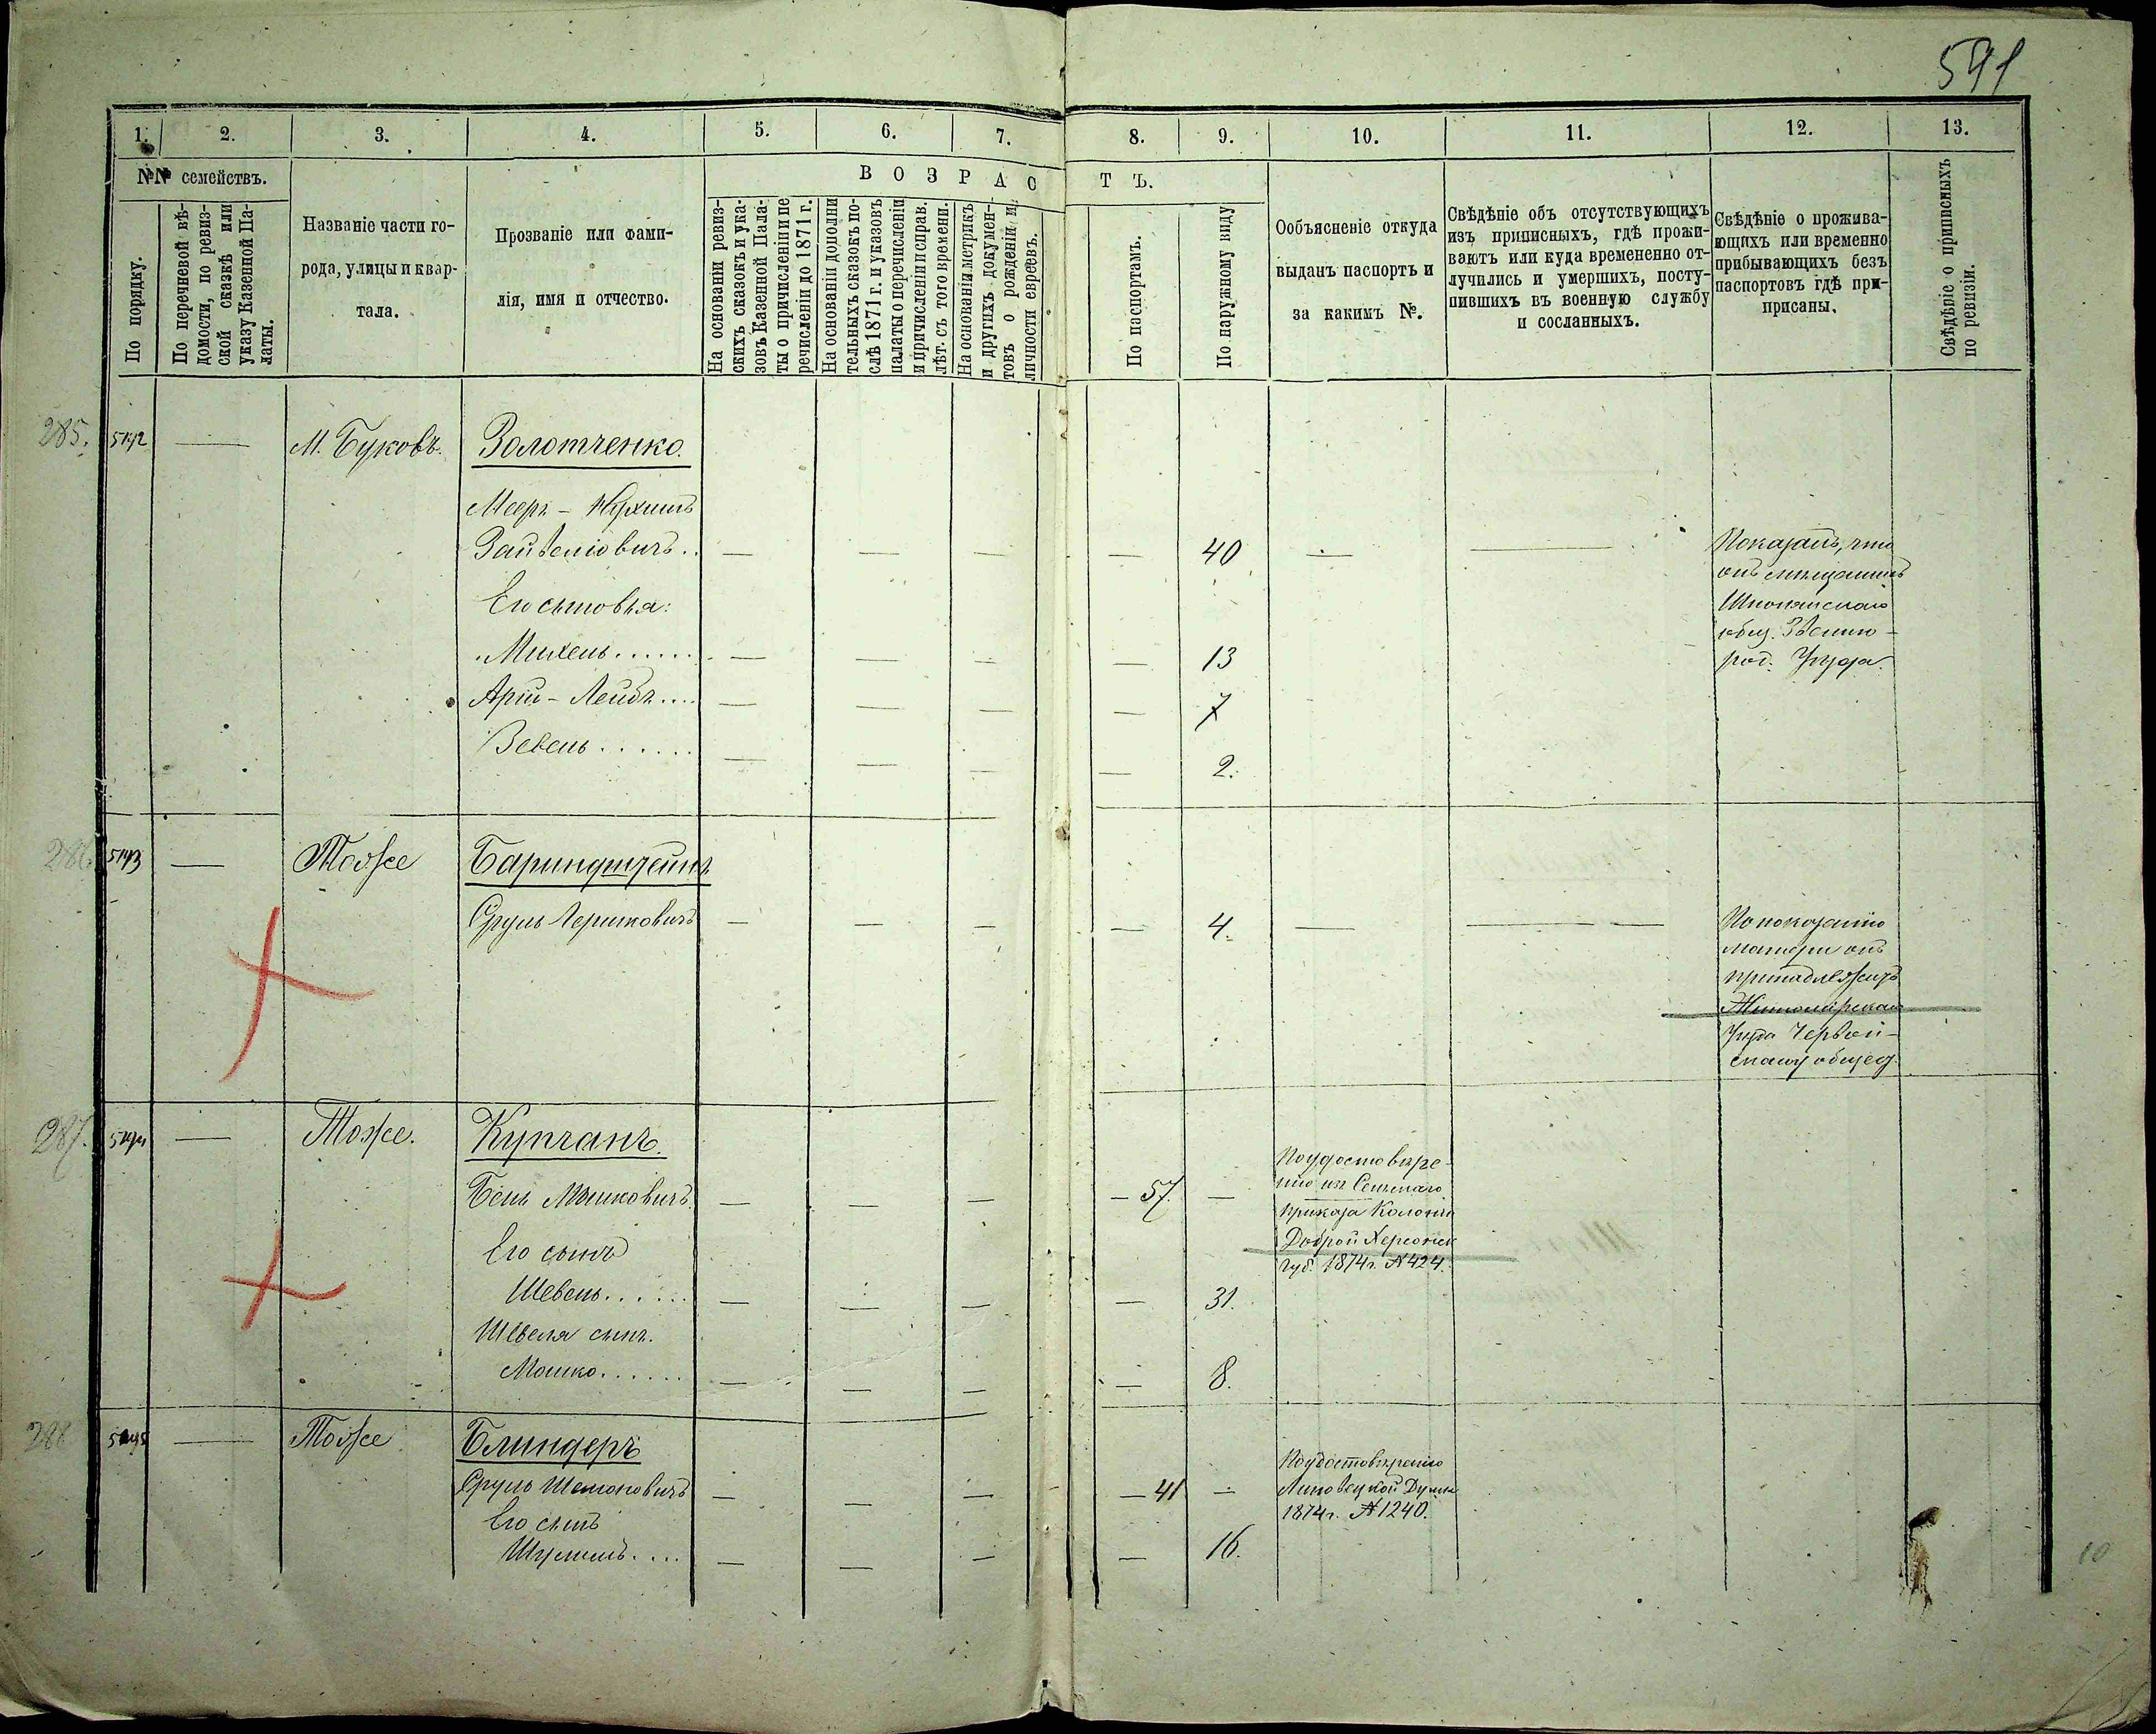 541
1. 2. 3. 4. 5. 6. 7. 8. 9. 10. 11. 12. 13.
№№ семействъ.
По порядку.
По перечневой вѣ-
домости, по ревиз-
ской сказкѣ или
указу Казенной Па-
латы.
Названіе части го-
рода, улицы и квар-
тала.
Прозваніе или фами-
лія, имя и отчество.
ВОЗРАСТЪ.
На основаніи ревиз-
скихъ сказокъ и ука-
зовъ Казенной Пала-
ты о причисленіи и пе
речисленіи до 1871 г.
На основаніи дополни
тельныхъ сказокъ по-
слѣ 1871 г. и указовъ
палаты о перечисленіи
и причисленіи и справ.
лѣт. съ того времени.
На основаніи метрикъ
и другихъ докумен-
товъ о рожденіи и
личности евреевъ.
По паспортамъ.
По наружному виду
Ообъясненіе откуда
выданъ паспортъ и
за какимъ №.
Свѣдѣніе объ отсутствующихъ
изъ приписныхъ, гдѣ прожи-
ваютъ или куда времененно от-
лучились и умершихъ, посту-
пившихъ въ военную службу
и сосланныхъ.
Свѣдѣніе о прожива-
ющихъ или временно
прибывающихъ безъ
паспортовъ гдѣ при-
писаны.
Свѣдѣніе о приписныхъ
по ревизіи.
285. 5142 — М. Буковъ. Золотченко.
Мееръ - Нухимъ
Зайвеліовичъ.. — — — — 40 — —
Его сыновья:
Михель...... — — — — 13
Арій - Лейбъ.... — — — — 7
Вевель...... — — — — 2.
Показалъ, что
онъ мѣщанинъ
Шполянскаго
общ. Звенино-
род. Уѣзда.
286 5143 — Тоже Баринштейнъ
Сруль Гершковичъ — — — — 4. — —
По показанію
матери онъ
принадлежитъ
Житомірскаго
Уѣзда
скому общест.
287. 5144 — Тоже. Купчанъ.
Бень Мошковичъ — — — — 57. —
Его сынъ
Шевель...... — — — — 31.
Шевеля сынъ.
Мошко...... — — — — 8.
По удостовѣре-
нію изъ Сельскаго
приказа Колоніи
Доброй Херсонск
губ. 1874 г. № 424.
288 5145 — Тоже Блиндеръ
Сруль Шемоновичъ — — — — 41 —
Его сынъ
Шулимъ.... — — — — 16.
По удостовѣренію
Липовецкой Думы
1874 г. № 1240.
10